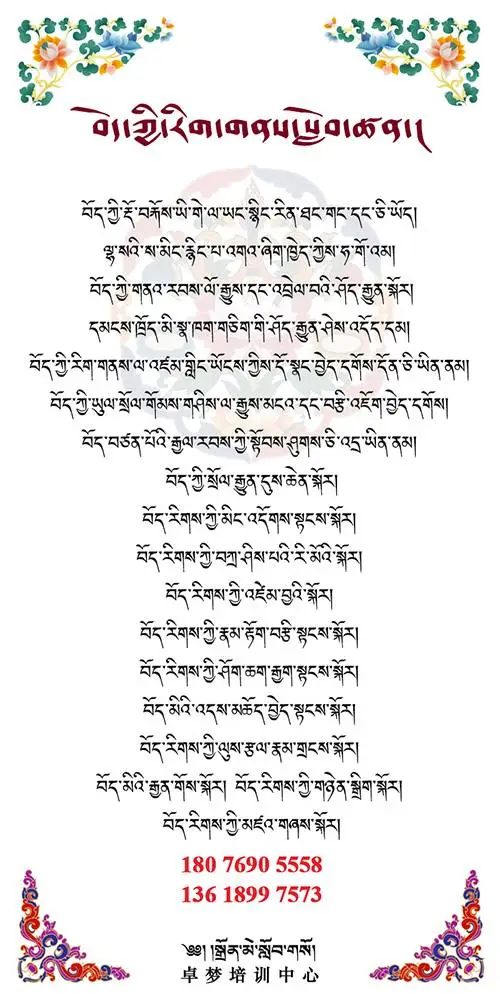 བོད་ཀྱི་རིག་གནས་ཁྱེབ་ཚན།
བོད་ཀྱི་རྡོ་བརྐོས་ཡི་གེ་ལ་ཡང་སྙིང་རིན་ཐང་གང་དང་ཅི་ཡོད།
ལྷ་སའི་ས་མིང་རྙིང་པ་འགའ་ཞིག་ཁྱེད་ཀྱིས་ཧ་གོ་འམ།
བོད་ཀྱི་གནའ་རབས་ལོ་རྒྱུས་དང་འབྲེལ་བའི་ཤོད་རྒྱུན་སྐོར།
དམངས་ཁྲོད་མི་སྣ་ཁག་གཅིག་གི་ཤོད་རྒྱུན་ཤེས་འདོད་དམ།
བོད་ཀྱི་རིག་གནས་ལ་འཛམ་གླིང་ཡོངས་ཀྱིས་དོ་སྣང་བྱེད་དགོས་དོན་ཅི་ཡིན་ནམ།
བོད་ཀྱི་ཡུལ་སྲོལ་གོམས་གཤིས་ལ་རྒྱུས་མངའ་དང་བརྩི་འཇོག་བྱེད་དགོས།
བོད་བཙན་པོའི་རྒྱལ་རབས་ཀྱི་སྟོབས་ཤུགས་ཅི་འདྲ་ཡིན་ནམ།
བོད་ཀྱི་སྲོལ་རྒྱུན་དུས་ཆེན་སྐོར།
བོད་རིགས་ཀྱི་མིང་འདོགས་སྟངས་སྐོར།
བོད་རིགས་ཀྱི་བཀྲ་ཤིས་པའི་རི་མོའི་སྐོར།
བོད་རིགས་ཀྱི་འཛེམ་བྱའི་སྐོར།
བོད་རིགས་ཀྱི་རྣམ་རྟོག་བརྩི་སྟངས་སྐོར།
བོད་རིགས་ཀྱི་ཤོག་ཆག་རྒྱག་སྟངས་སྐོར།
བོད་མིའི་འདས་མཆོད་བྱེད་སྟངས་སྐོར།
བོད་རིགས་ཀྱི་ལུས་རྩལ་རྣམ་གྲངས་སྐོར།
བོད་མིའི་རྒྱན་གོས་སྐོར། བོད་རིགས་ཀྱི་གཉེན་སྒྲིག་སྐོར།
བོད་རིགས་ཀྱི་མཛའ་གཞས་སྐོར།
180 7690 5558
136 1899 7573
༄༅། །སྒྲོན་མེ་སློབ་གསོ།
卓梦培训中心